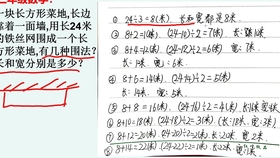 二年级数学:
一块长方形菜地,长边
靠着一面墙,用长24米
的铁丝网围成一个长
方形菜地,有几种围法?
长和宽分别是多少?
① 24÷3=8(米) 长和宽都是8米.
② 8+2=10(米) (24-10)÷2=7(米) 长:10米
③ 8+4=12(米) (24-12)÷2=6(米) 宽:7米
长:12米 宽:6米.
④ 8+6=14(米) (24-14)÷2=5(米)
长:14米,宽:5米.
⑤ 8+8=16(米) (24-16)÷2=4(米) 长16米宽4米
⑥ 8+10=18(米) (24-18)÷2=3(米) 长18米,宽3米
⑦ 8+12=20(米) (24-20)÷2=2(米) 长:20米,宽2米.
⑧ 8+14=22(米) (24-22)÷2=1(米) 长:22米,宽1米